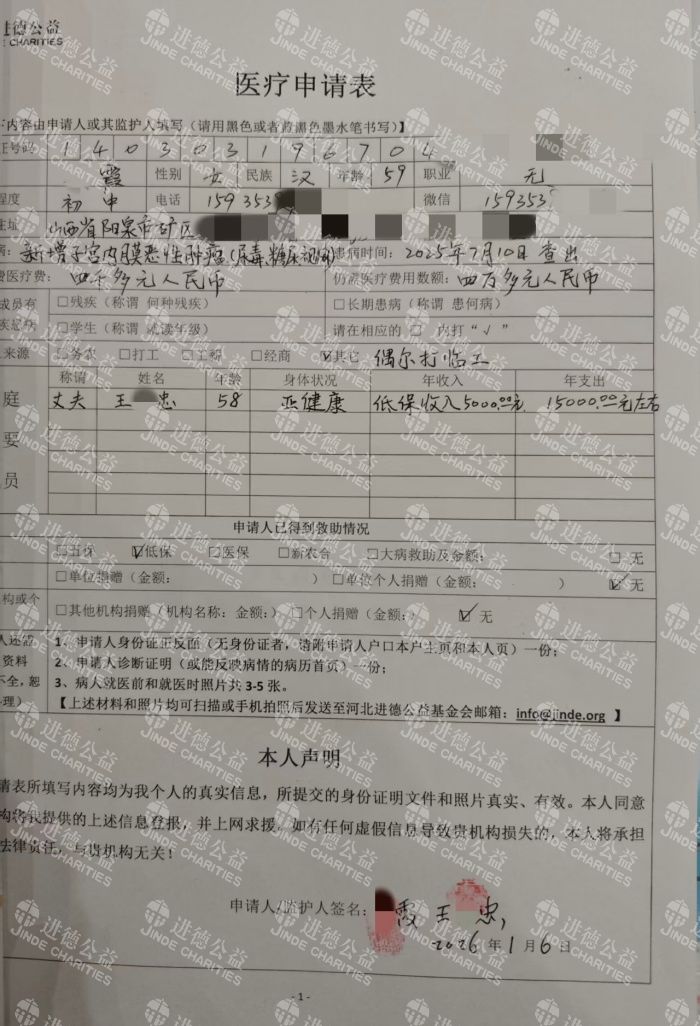 进德公益
JINDE CHARITIES
医疗申请表
下内容由申请人或其监护人填写（请用黑色或者蓝黑色墨水笔书写）】
证号码 1 4 0 3 0 3 1 9 6 7 0 4
霞 性别 女 民族 汉 年龄 59 职业 无
程度 初中 电话 159353 微信 159353
住址 山西省阳泉市矿区
病: 新增子宫内膜恶性肿瘤 患病时间: 2025年7月10日查出
费医疗费: 四千多元人民币 仍需医疗费用数额: 四万多元人民币
成员有 □残疾（称谓 何种残疾） □长期患病（称谓 患何病）
疾患病 □学生（称谓 就读年级） 请在相应的 □ 内打“√”
来源 □务农 □打工 □工薪 □经商 ☑其它 偶尔打临工
称谓 姓名 年龄 身体状况 年收入 年支出
庭 丈夫 王 忠 58 亚健康 低保收入5000.00元 15000.00元左右
要
员
申请人已得到救助情况
□五保 ☑低保 □医保 □新农合 □大病救助及金额: □ 无
□单位捐赠（金额: ） □单位个人捐赠（金额: ） ☑ 无
机构或个 □其他机构捐赠（机构名称: 金额:） □个人捐赠（金额:） ☑ 无
人还需 1、申请人身份证正反面（无身份证者，请附申请人户口本户主页和本人页）一份;
资料 2、申请人诊断证明（或能反映病情的病历首页）一份;
不全，恕 3、病人就医前和就医时照片共 3-5 张。
理） 【上述材料和照片均可扫描或手机拍照后发送至河北进德公益基金会邮箱: info@jinde.org 】
本人声明
请表所填写内容均为我个人的真实信息，所提交的身份证明文件和照片真实、有效。本人同意
构将我提供的上述信息登报，并上网求援。如有任何虚假信息导致贵机构损失的，本人将承担
法律责任，与贵机构无关！
申请人/监护人签名: 霞 王 忠
2026 年 1 月 6 日
- 1 -